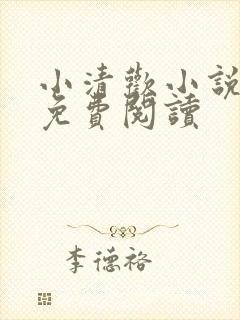 小清歡小說
免費閱讀
李德裕